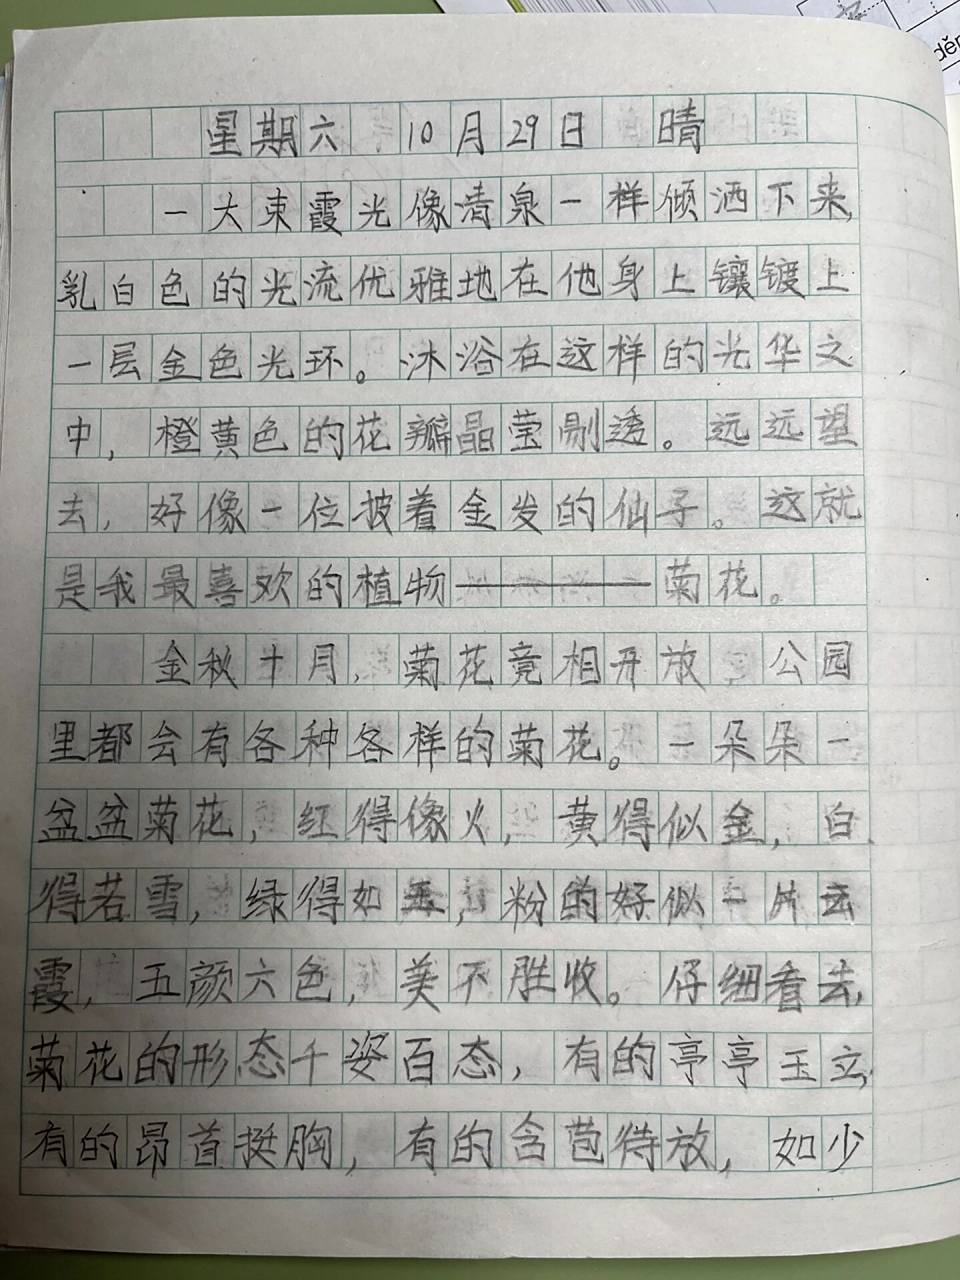 星期六 10月29日 晴
一大束霞光像清泉一样倾洒下来,
乳白色的光流优雅地在他身上镶镀上
一层金色光环。沐浴在这样的光华之
中,橙黄色的花瓣晶莹剔透。远远望
去,好像一位披着金发的仙子。这就
是我最喜欢的植物————菊花。
金秋十月,菊花竞相开放,公园
里都会有各种各样的菊花。一朵朵一
盆盆菊花,红得像火,黄得似金,白
得若雪,绿得如玉,粉的好似一片云
霞,五颜六色,美不胜收。仔细看去,
菊花的形态千姿百态,有的亭亭玉立,
有的昂首挺胸,有的含苞待放,如少
děn